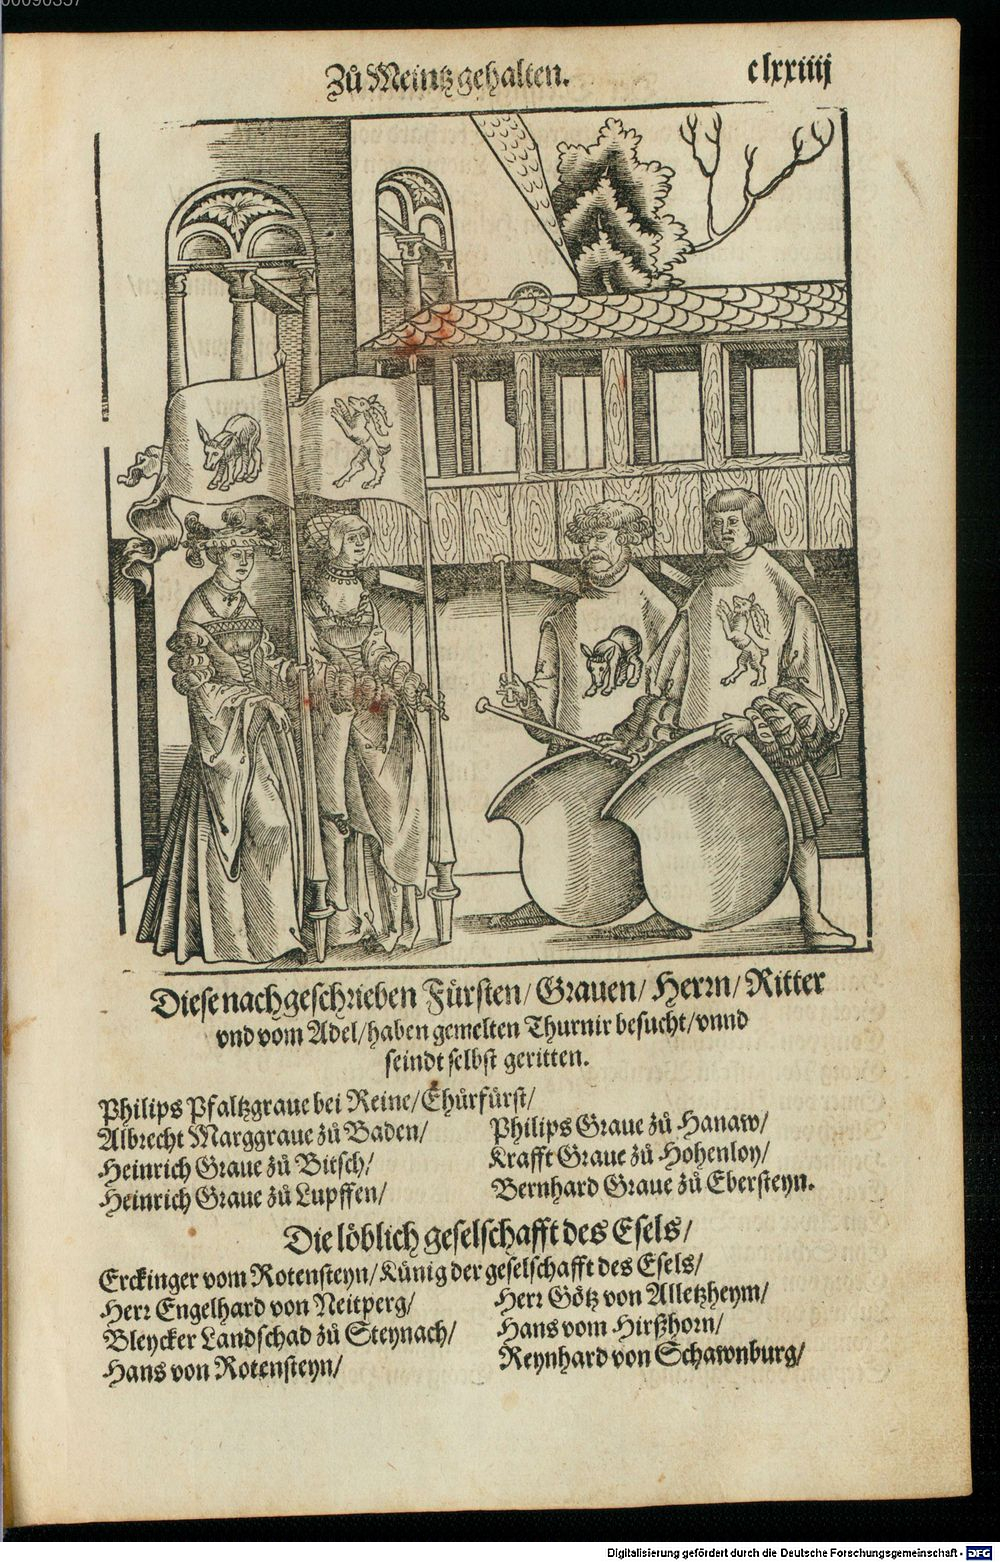 Zů Meintz gehalten.
clxxiiij
Diese nachgeschrieben Fürsten/ Grauen/ Herrn/ Ritter
vnd vom Adel/ haben gemelten Thurnir besucht/ vnnd
seindt selbst geritten.
Philips Pfaltzgraue bei Reine/ Chůrfürst/
Albrecht Marggraue zů Baden/
Heinrich Graue zů Bitsch/
Heinrich Graue zů Lupffen/
Philips Graue zů Hanaw/
Krafft Graue zů Hohenloy/
Bernhard Graue zů Ebersteyn.
Die löblich geselschafft des Esels/
Erckinger vom Rotensteyn/ Künig der geselschafft des Esels/
Herr Engelhard von Neitperg/
Bleycker Landschad zů Steynach/
Hans von Rotensteyn/
Herr Götz von Alletzheym/
Hans vom Hirßhorn/
Reynhard von Schawnburg/
Digitalisierung gefördert durch die Deutsche Forschungsgemeinschaft - DFG